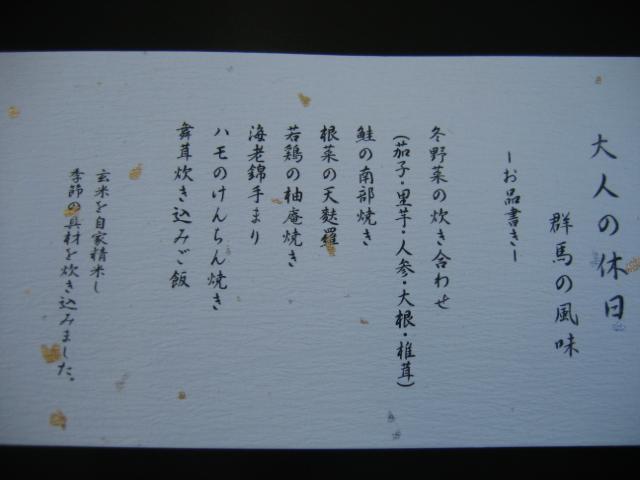 大人の休日
群馬の風味
ーお品書きー
冬野菜の炊き合わせ
(茄子・里芋・人参・大根・椎茸)
鮭の南部焼き
根菜の天麩羅
若鶏の柚庵焼き
海老錦手まり
ハモのけんちん焼き
舞茸炊き込みご飯
玄米を自家精米し
季節の具材を炊き込みました。